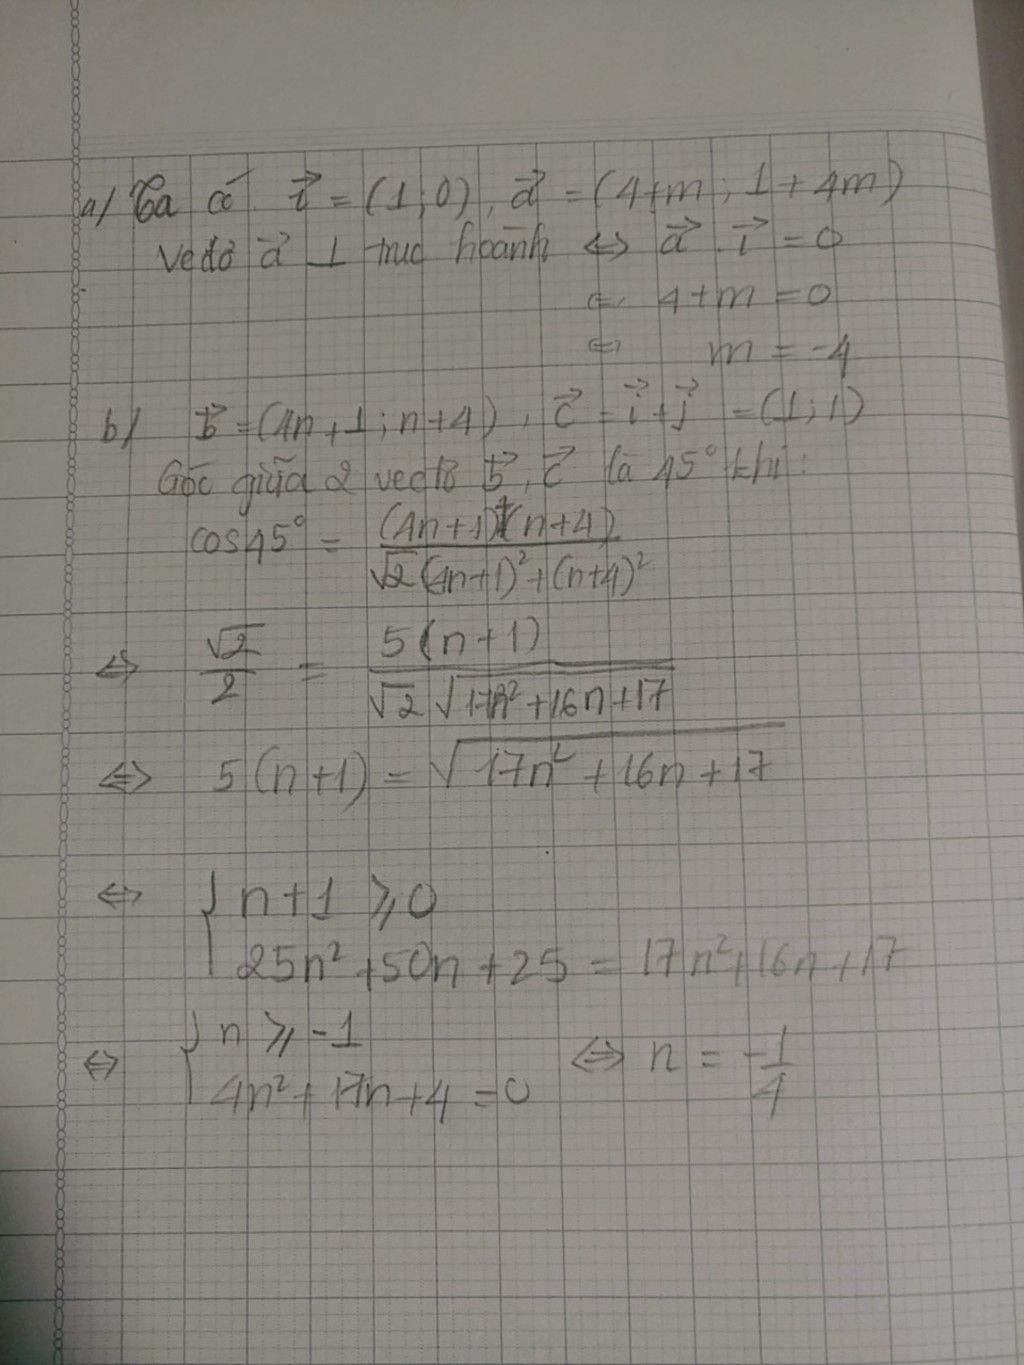 a/ Ta có i⃗ = (1; 0), a⃗ = (4+m; 1+4m)
vectơ a⃗ ⊥ trục hoành ⇔ a⃗ . i⃗ = 0
⇔ 4+m = 0
⇔ m = -4
b/ b⃗ = (4n+1; n+4), c⃗ = i⃗ + j⃗ = (1; 1)
Góc giữa 2 vectơ b⃗, c⃗ là 45° khi:
cos45° = ((4n+1)+(n+4))/(√2(4n+1)²+(n+4)²)
⇔ √2/2 = 5(n+1)/(√2 √(17n²+16n+17))
⇔ 5(n+1) = √(17n²+16n+17)
⇔ { n+1 ⩾ 0
25n²+50n+25 = 17n²+16n+17
⇔ { n ⩾ -1 ⇔ n = -1/4
4n²+17n+4 = 0